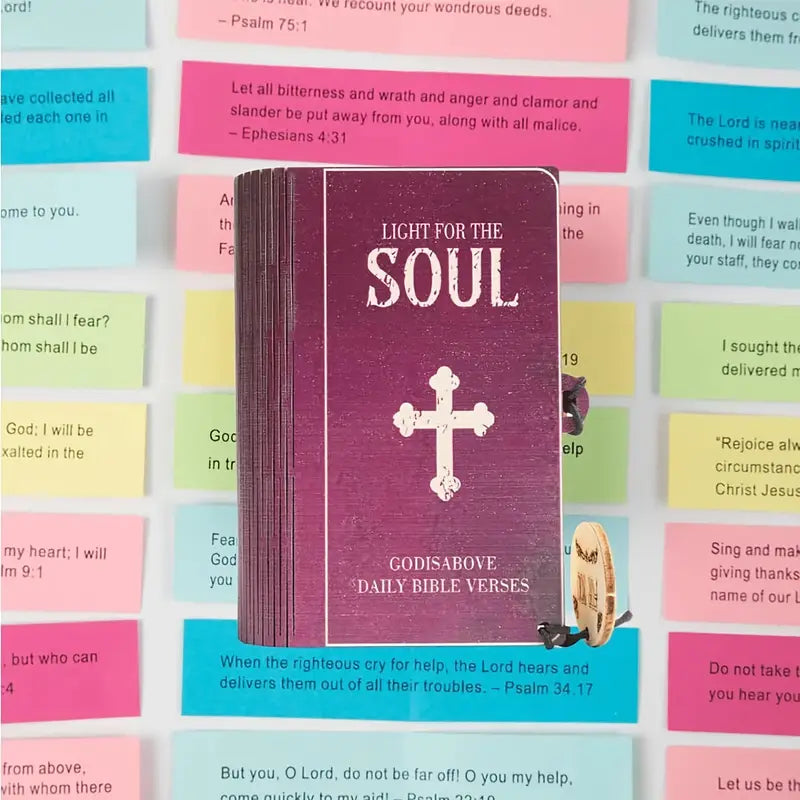 ord!
We recount your wondrous deeds.
– Psalm 75:1
The righteous
delivers them
ave collected all
led each one in
Let all bitterness and wrath and anger and clamor and
slander be put away from you, along with all malice.
– Ephesians 4:31
The Lord is near
crushed in spirit
ome to you.
ing in
the
Even though I wal
death, I will fear no
your staff, they co
LIGHT FOR THE
SOUL
GODISABOVE
DAILY BIBLE VERSES
om shall I fear?
hom shall I be
19
I sought the
delivered m
God; I will be
xalted in the
God
in tr
elp
"Rejoice alw
circumstanc
Christ Jesus
my heart; I will
lm 9:1
Fea
God
you
Sing and mak
giving thanks
name of our L
, but who can
:4
When the righteous cry for help, the Lord hears and
delivers them out of all their troubles. – Psalm 34.17
Do not take t
you hear you
from above,
with whom there
But you, O Lord, do not be far off! O you my help,
come quickly to my aid! – Psalm 22:19
Let us be th